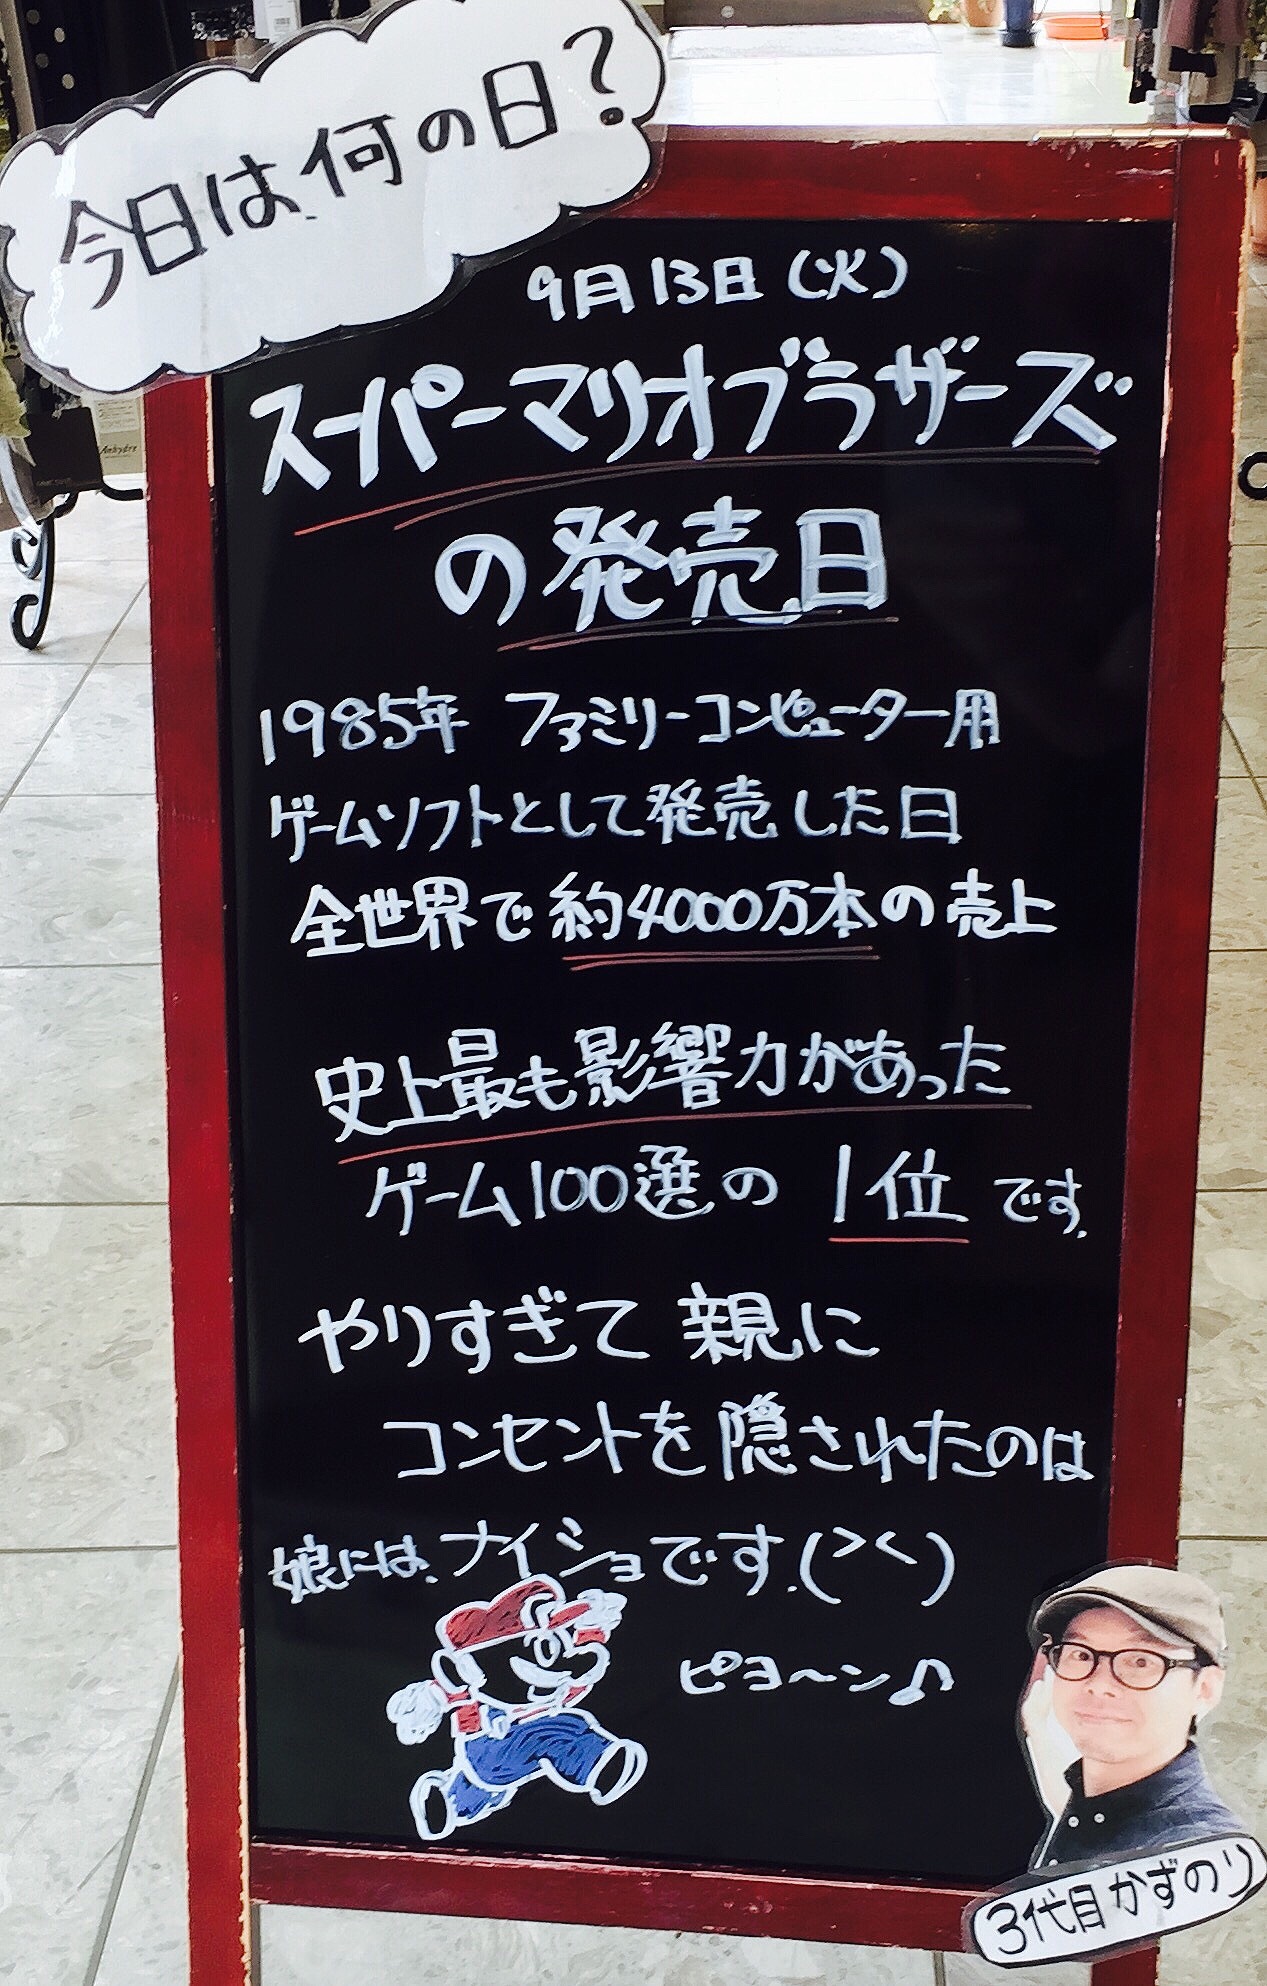 今日は何の日?
9月13日(火)
スーパーマリオブラザーズ
の発売日
1985年 ファミリーコンピューター用
ゲームソフトとして発売した日
全世界で約4000万本の売上
史上最も影響力があった
ゲーム100選の1位です。
やりすぎて親に
コンセントを隠されたのは
娘には、ナイショです。(><)
ピヨ〜ン♪
3代目かずのり
Anhydre